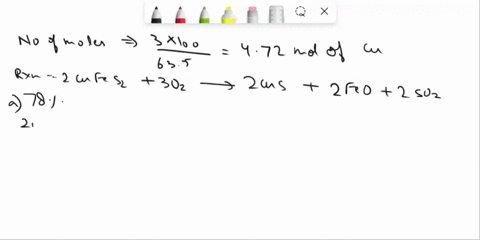 No of moles ⇒ 3×100/63.5 = 4.72 mol of Cu
Rxn - 2 CuFeS2 + 3O2 → 2CuS + 2FeO + 2SO2
a) 78%.
2,